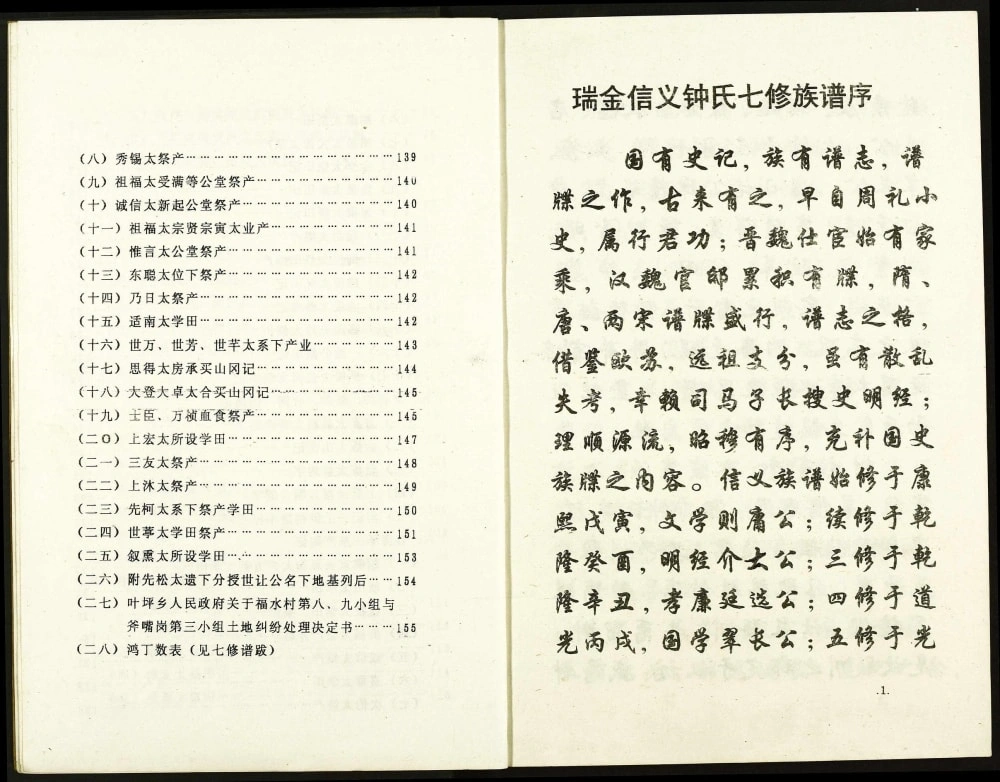 (八) 秀锡太祭产………………………………139
(九) 祖福太受满等公堂祭产……………………140
(十) 诚信太新起公堂祭产………………………140
(十一) 祖福太宗贤宗寅太业产…………………141
(十二) 惟言太公堂祭产…………………………141
(十三) 东聪太位下祭产…………………………142
(十四) 乃日太祭产………………………………142
(十五) 适南太学田………………………………142
(十六) 世万、世芳、世芊太系下产业……………143
(十七) 思得太房承买山冈记……………………144
(十八) 大登大卓太合买山冈记…………………145
(十九) 王臣、万祯血食祭产……………………145
(二〇) 上宏太所设学田…………………………147
(二一) 三友太祭产………………………………148
(二二) 上沐太祭产………………………………149
(二三) 先柯太系下祭产学田……………………150
(二四) 世葶太学田祭产…………………………151
(二五) 叙熏太所设学田…………………………153
(二六) 附先松太遗下分授世让公名下地基列后……154
(二七) 叶坪乡人民政府关于福水村第八、九小组与
斧嘴岗第三小组土地纠纷处理决定书………155
(二八) 鸿丁数表(见七修谱跋)
瑞金信义钟氏七修族谱序
国有史记,族有谱志,谱
牒之作,古来有之,早自周礼小
史,属行君功;晋魏仕宦始有家
乘,汉魏官邸累积有牒,隋、
唐、两宋谱牒盛行,谱志之格,
借鉴欧苏,远祖支分,虽有散乱
失考,幸赖司马子长搜史明经;
理顺源流,昭穆有序,充补国史
族牒之内容。信义族谱始修于康
熙戊寅,文学则庸公;续修于乾
隆癸酉,明经介士公;三修于乾
隆辛丑,孝廉廷选公;四修于道
光丙戌,国学翠长公;五修于光
.1.